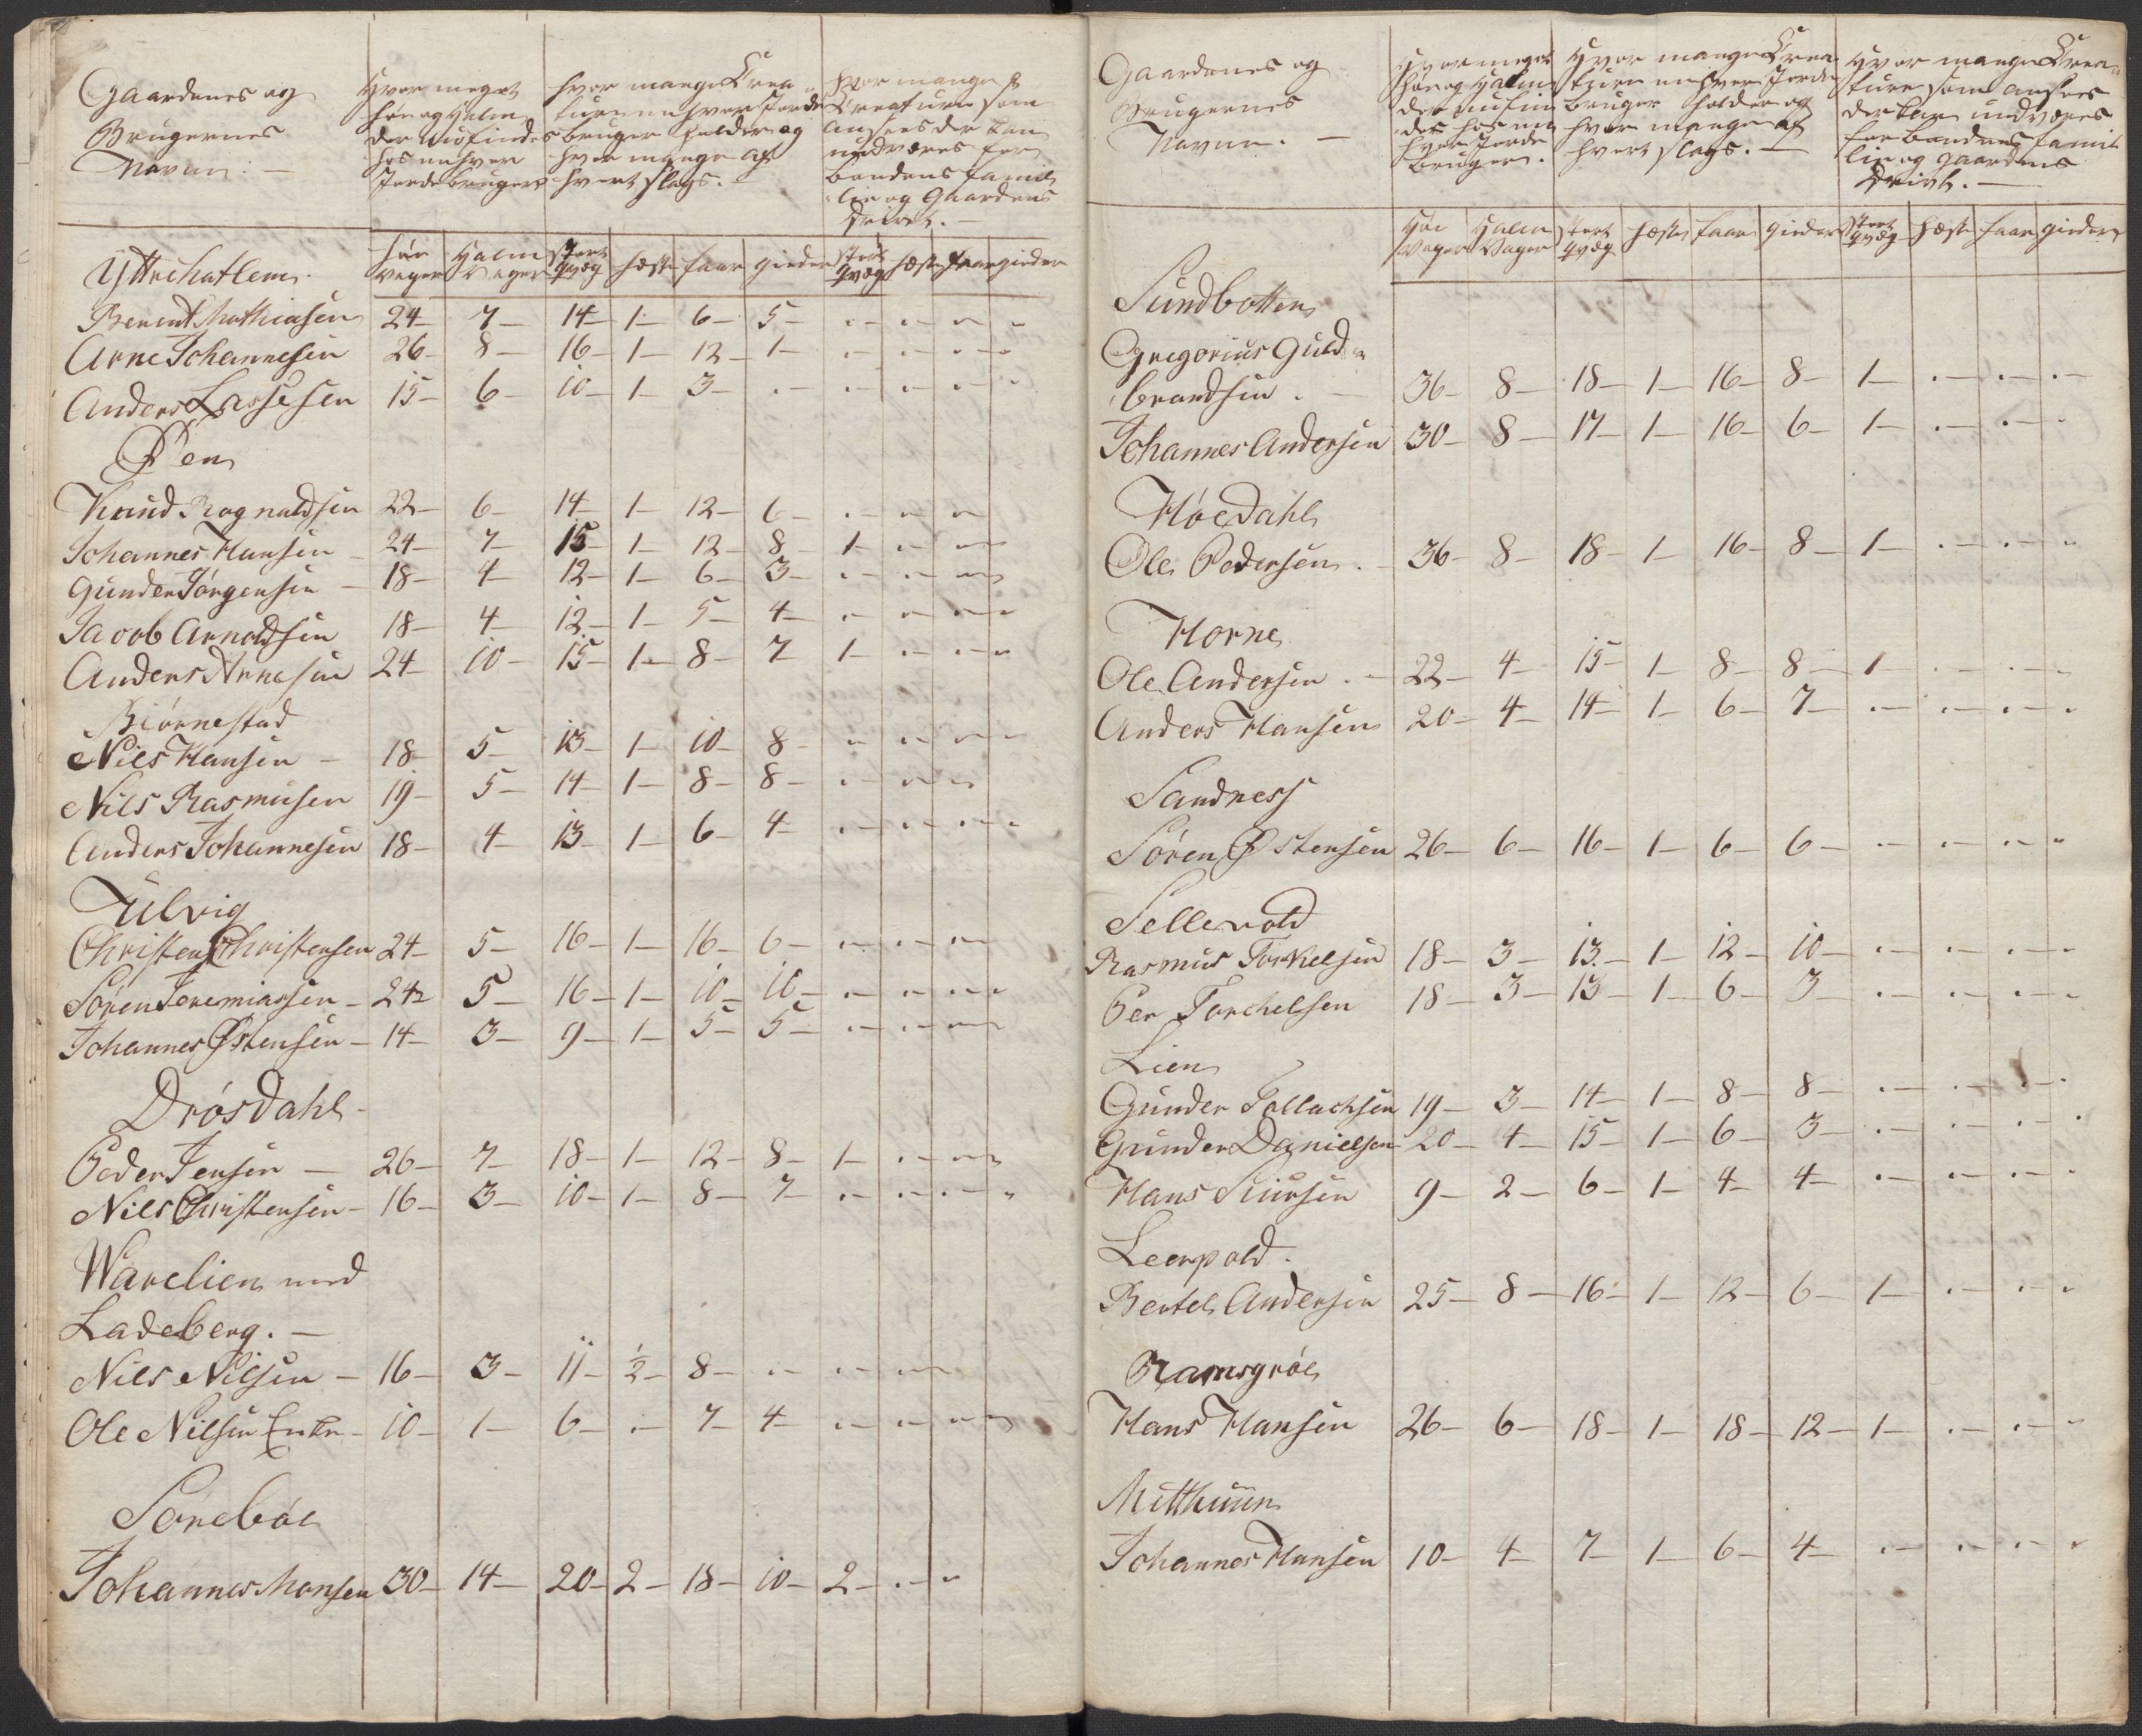 Gaardenes og
Brugernes
Navne. —
Hvor meget
høe og Halm
der nu findes
hos enhver
Jordebruger
hvor mange Crea-
ture enhver Jorde
bruger holder og
hvor mange af
hvert slags. —
hvor mange
Creature som
ansees der kan
undværes for
bondens famil
lie og Gaardens
Drivt. —
høe Vager | Halm Vager | stort qvæg | heste | faar | gieder | stort qvæg | heste | faar | gieder
Yttrehatlem
Berent Mathiasen 24 — 7 — 14 — 1 — 6 — 5 —
Arne Johannesen 26 — 8 — 16 — 1 — 12 — 1 —
Anders Lassesen 15 — 6 — 10 — 1 — 3 —
Øen
Knud Rognaldsen 22 — 6 — 14 — 1 — 12 — 6 —
Johannes Hansen 24 — 7 — 15 — 1 — 12 — 8 — 1 —
Gunder Jørgensen 18 — 4 — 12 — 1 — 6 — 3 —
Jacob Arnoldsen 18 — 4 — 12 — 1 — 5 — 4 —
Anders Arnesen 24 — 10 — 15 — 1 — 8 — 7 — 1 —
Biørnestad
Nils Hansen — 18 — 5 — 13 — 1 — 10 — 8 —
Nils Rasmusen 19 — 5 — 14 — 1 — 8 — 8 —
Anders Johannesen 18 — 4 — 13 — 1 — 6 — 4 —
Julvig
Christen Christensen 24 — 5 — 16 — 1 — 16 — 6 —
Søren Jeremiassen — 24 — 5 — 16 — 1 — 10 — 10 —
Johannes Østensen — 14 — 3 — 9 — 1 — 5 — 5 —
Drøsdahl
Peder Jensen — 26 — 7 — 18 — 1 — 12 — 8 — 1 —
Nils Christensen — 16 — 3 — 10 — 1 — 8 — 7 —
Warelien med
Ladeberg. —
Nils Nilsen — 16 — 3 — 11 — ½ — 8 —
Ole Nilsen Enke — 10 — 1 — 6 — — 7 — 4 —
Sørebøe
Johannes Monsen 30 — 14 — 20 — 2 — 18 — 10 — 2 —
Gaardenes og
Brugernes
Navne. —
Hvor meget
høe og Halm
der nu fin
des hos en
hver Jorde
bruger.
Hvor mange Crea
ture enhver Jorde
bruger holder og
hvor mange af
hvert slags. —
Hvor mange Crea-
ture som ansees
der kan undværes
for bondens famil
lie og Gaardens
Drivt. —
Høe Vager | Halm Vager | stort qvæg | heste | faar | gieder | stort qvæg | heste | faar | gieder
Sundbotten
Gregorius Guld-
brandsen. — 36 — 8 — 18 — 1 — 16 — 8 — 1 —
Johannes Andersen 30 — 8 — 17 — 1 — 16 — 6 — 1 —
Høedahl
Ole Pedersen. — 36 — 8 — 18 — 1 — 16 — 8 — 1 —
Horne
Ole Andersen. — 22 — 4 — 15 — 1 — 8 — 8 — 1 —
Anders Hansen 20 — 4 — 14 — 1 — 6 — 7 —
Sandness
Søren Østensen 26 — 6 — 16 — 1 — 6 — 6 —
Sellevold
Rasmus Torkelsen 18 — 3 — 13 — 1 — 12 — 10 —
Per Torchelsen 18 — 3 — 13 — 1 — 6 — 3 —
Lien
Gunder Tollachsen 19 — 3 — 14 — 1 — 8 — 8 —
Gunder Danielsen 20 — 4 — 15 — 1 — 6 — 3 —
Hans Siursen 9 — 2 — 6 — 1 — 4 — 4 —
Leerpold.
Bertel Andersen 25 — 8 — 16 — 1 — 12 — 6 — 1 —
Ramsgrøe
Hans Hansen 26 — 6 — 18 — 1 — 18 — 12 — 1 —
Mitthuun
Johannes Hansen 10 — 4 — 7 — 1 — 6 — 4 —